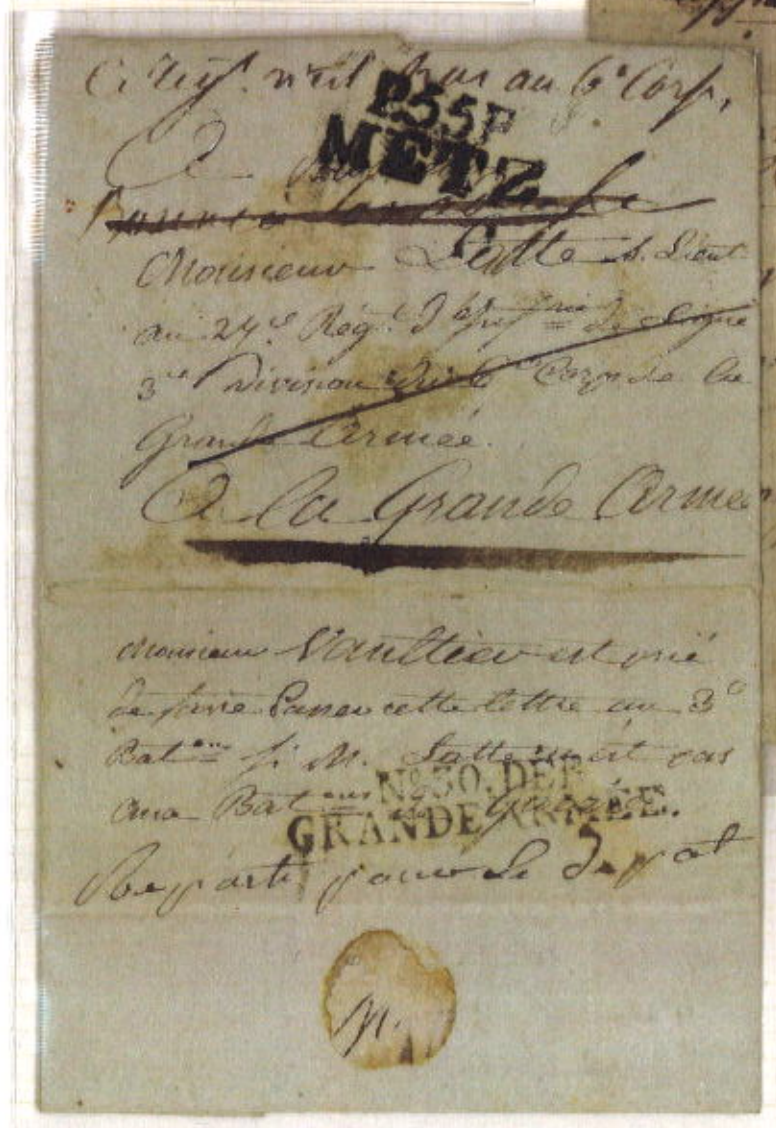 Ce Régt. n'est pas au 6e Corps,
P.55.P
METZ
A
Monsieur Latte s. Lieut
au 24e Régt. d'infrie de Ligne
3me Division du 6me Corps de la
Grande Armée.
A La Grande Armée
Monsieur Vaultier est prié
de faire Passer cette lettre au 3e
Baton Si M. Latte n'est pas
aux Batons de Guerre
No. 30. DEP
GRANDE ARMÉE.
Reparti pour le dépot